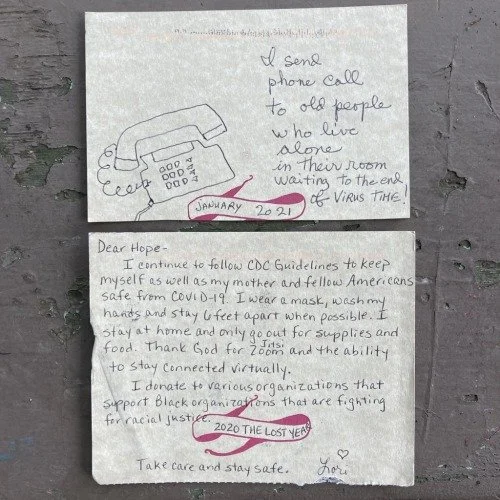 I send
phone call
to old people
who live
alone
in their room
waiting to the end
of VIRUS TIME!
JANUARY 2021
Dear Hope-
I continue to follow CDC Guidelines to keep
myself as well as my mother and fellow Americans
safe from COVID-19. I wear a mask, wash my
hands and stay 6 feet apart when possible. I
stay at home and only go out for supplies and
food. Thank God for Zoom Jitsi and the ability
to stay connected virtually.
I donate to various organizations that
support Black organizations that are fighting
for racial justice.
2020 THE LOST YEAR
Take care and stay safe. Lori